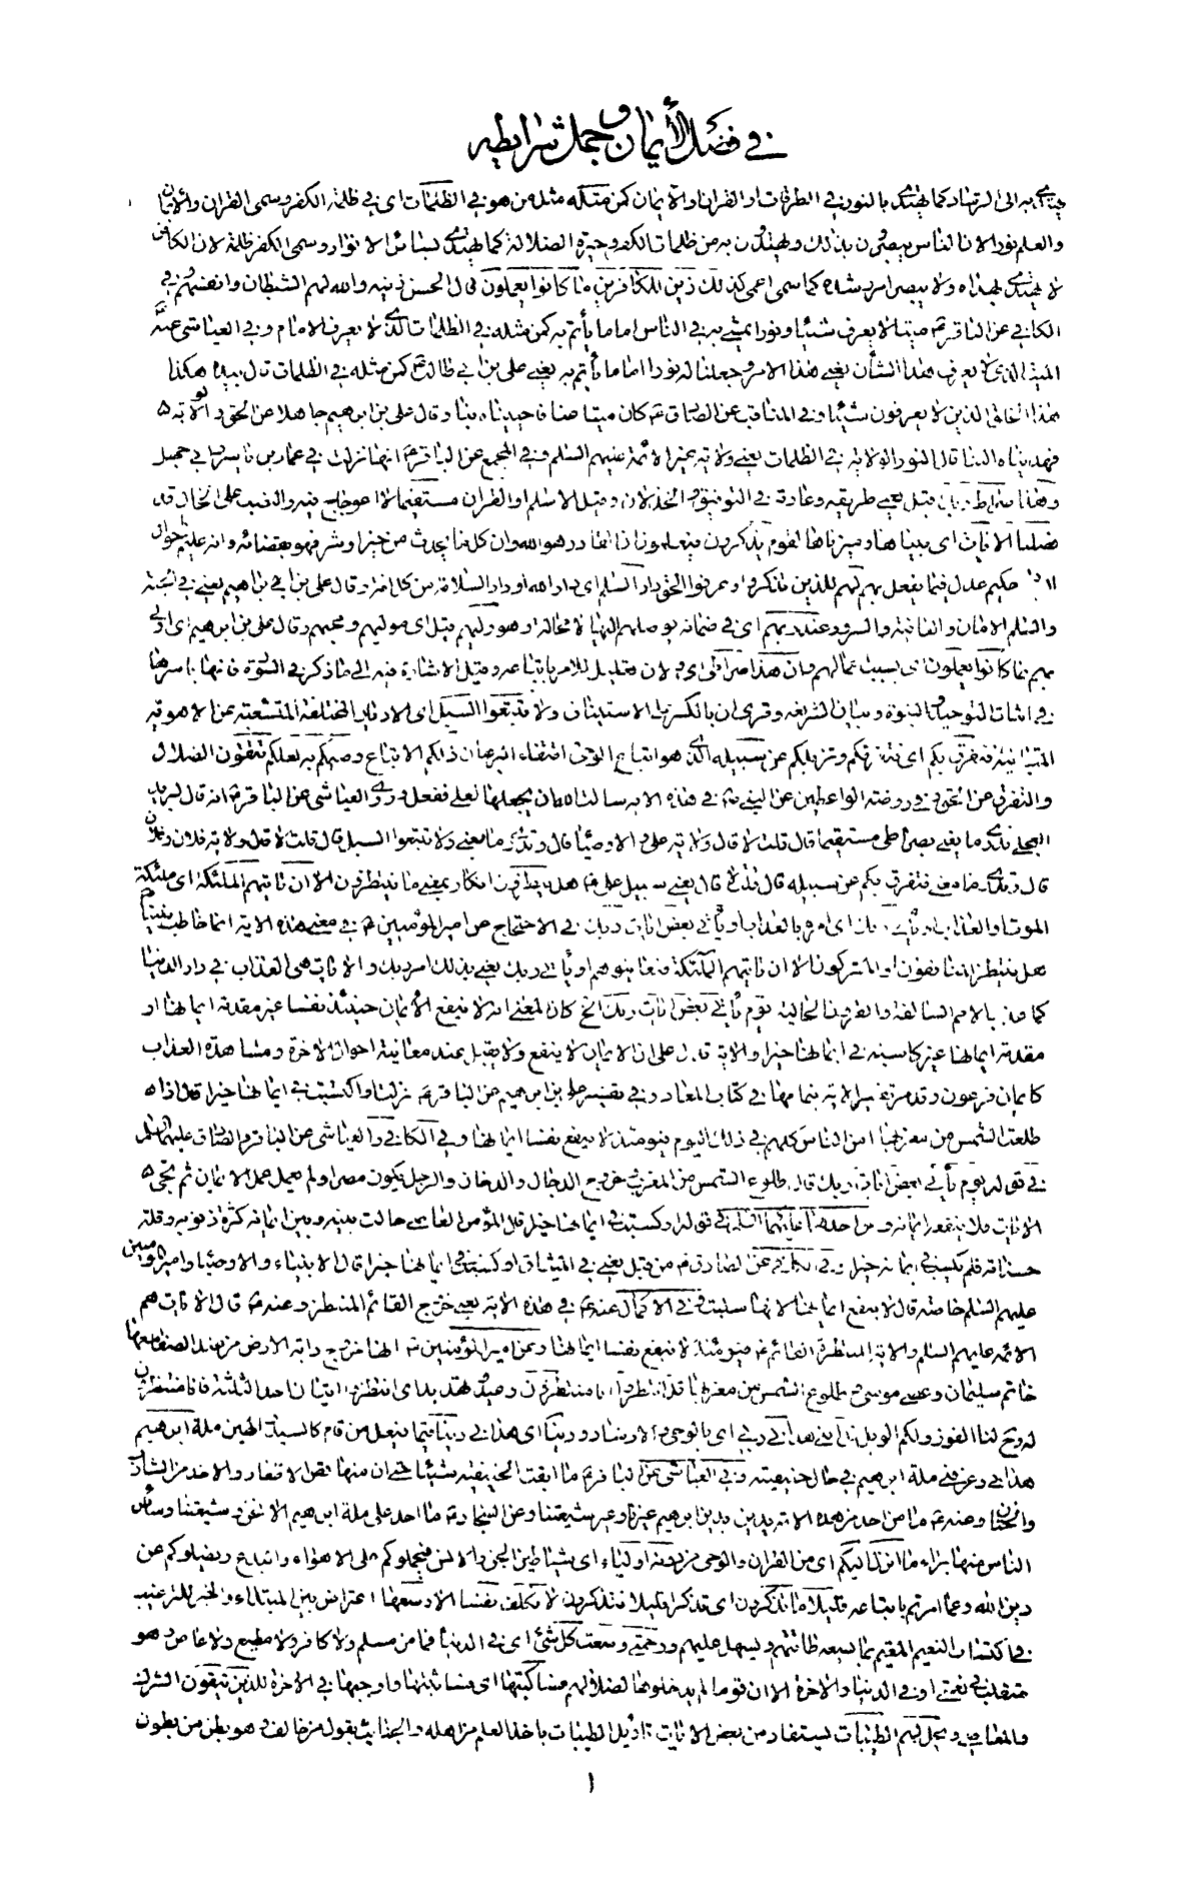 في فضل الأيمان و جمل شرايطه
به الى الرشاد كما يهتدى بالنور في الطرقات او القران والايمان كمن مثله مثل من هو في الظلمات اى في ظلمة الكفر وسمى القران والايمان
والعلم نورا لان الناس يبصرون بذلك ويهتدون به من ظلمات الكفر وحيرة الضلالة كما يهتدى بسائر الانوار وسمى الكفر ظلمة لان الكافر
لا يهتدى بهداه ولا يبصر امر رشده كما سمى اعمى كذلك زين للكافرين ما كانوا يعملون قال الحسن زينه والله لهم الشيطان وانفسهم في
الكافي عن الباقر ع ميتا لا يعرف شيئا ونورا يمشي به في الناس اماما يأتم به كمن مثله في الظلمات الذى لا يعرف الامام وفي العياشي عنه
الميت الذى لا يعرف هذا الشأن يعني هذا الامر وجعلنا له نورا اماما يأتم به يعني علي بن ابي طالب ع كمن مثله في الظلمات قال بيده هكذا
هذا الخلق الذين لا يعرفون شيئا وفي المناقب عن الصادق ع كان ميتا عنا فاحييناه بنا وقال علي بن ابرهيم جاهلا عن الحق والولاية
فهديناه الينا قال النور الولاية في الظلمات يعني ولاية غير الائمة عليهم السلم وفي المجمع عن الباقر ع انها نزلت في عمار بن ياسر وابي جهل
وهذا صراط ربك قيل يعني طريقه وعادته في التوفيق والخذلان وقيل الاسلم او القران مستقيما لا اعوجاج فيه والنصب على الحال قد
فصلنا الايات اى بيناها وميزناها لقوم يذكرون فيعلمون ان القادر هو الله وان كلما يحدث من خير او شر فهو بقضائه وانه عليم باحوال
حكيم عدل فيما يفعل بهم لهم للذين تذكروا وعرفوا الحق دار السلم اى دار الله او دار السلامة من كل افة وقال علي بن ابرهيم يعني في الجنة
والسلم الامان والعافية والسرور عند ربهم اى في ضمانه يوصلهم اليها لا محالة وهو وليهم قيل اى موليهم ومحبهم وقال علي بن ابرهيم اى اولى
بهم بما كانوا يعملون اى بسبب اعمالهم وان هذا صراطى اى ولان تعليل للامر باتباعه وقيل الاشارة فيه الى ما ذكر في السورة فانها باسرها
في اثبات التوحيد والنبوة وبيان الشريعة وقرئ ان بالكسر على الاستيناف ولا تتبعوا السبل اى الاديان المختلفة المتشعبة عن الاهوية
المتباينة فتفرق بكم اى فتفرقكم وتزيلكم عن سبيله الذى هو اتباع الوحى اقتفاء البرهان ذلكم الاتباع وصيكم به لعلكم تتقون الضلال
والتفرق عن الحق وفي روضة الواعظين عن النبي ص في هذه الاية سالت الله ان يجعلها لعلي ففعل وروى العياشي عن الباقر ع انه قال لبريد
العجلي تدرى ما يعني بصراطي مستقيما قال قلت لا قال ولاية علي والاوصياء قال وتدرى ما يعني ولا تتبعوا السبل قال قلت لا قال ولاية فلان وفلان
قال وتدرى ما معنى فتفرق بكم عن سبيله قال قلت لا قال يعني سبيل علي ع هل ينظرون انكار يعني ما ينتظرون الا ان تاتيهم الملئكة اى ملئكة
الموت او العذاب او ياتى ربك اى امره بالعذاب او يأتى بعض ايات ربك في الاحتجاج عن امير المؤمنين ع في معنى هذه الاية انما خاطب نبينا
هل ينتظر المنافقون او المشركون الا ان تاتيهم الملئكة فيعاينوهم او ياتى ربك يعني بذلك امر ربك والايات هى العذاب في دار الدنيا
كما عذب الامم السالفة والقرون الخالية يوم يأتى بعض ايات ربك الخ كان المعنى انه لا ينفع الايمان حينئذ نفسا غير مقدمة ايمانها او
مقدمة ايمانها غير كاسبة في ايمانها خيرا والاية تدل على ان الايمان لا ينفع ولا يقبل عند معاينة احوال الاخرة ومشاهدة العذاب
كايمان فرعون وقد مر تفسير الاية بتمامها في كتاب المعاد وفي تفسير علي بن ابرهيم عن الباقر ع نزلت او اكتسبت في ايمانها خيرا قال اذا
طلعت الشمس من مغربها امن الناس كلهم في ذلك اليوم فيومئذ لا ينفع نفسا ايمانها وفي الكافي والعياشي عن الباقر والصادق عليهما السلم
في قوله يوم يأتى بعض ايات ربك قال طلوع الشمس من المغرب وخروج الدجال والدخان والرجل يكون مصرا ولم يعمل عمل الايمان ثم تجئ
الايات فلا ينفعه ايمانه وعن احدهما عليهما السلم في قوله او كسبت في ايمانها خيرا قال المؤمن العاصى حالت بينه وبين ايمانه كثرة ذنوبه وقلة
حسناته فلم يكسب في ايمانه خيرا وفي الكافي عن الصادق ع من قبل يعني في الميثاق او كسبت في ايمانها خيرا قال الاقرار بالانبياء والاوصياء وامير المؤمنين
عليهم السلم خاصة قال لا ينفع ايمانها لانها سلبت وفي الاكمال عنه ع في هذه الاية يعني خروج القائم المنتظر وعنه ع قال الايات هم
الائمة عليهم السلم والاية المنتظرة القائم ع فيومئذ لا ينفع نفسا ايمانها وعن امير المؤمنين ع انها خروج دابة الارض من عند الصفا معها
خاتم سليمان وعصى موسى وطلوع الشمس من مغربها قل انتظروا انا منتظرون وعيد وتهديد اى انتظروا اتيان احد الثلثة فانا منتظرون
له وح لنا الفوز ولكم الويل انني هداني ربي اى بالوحى والارشاد دينا اى هداني دينا قيما فيعل من قام كالسيد والهين ملة ابرهيم
هداني وعرفني ملة ابرهيم في حال حنيفيته وفي العياشي عن الباقر ع ما ابقت الحنيفية شيئا حتى ان منها قص الاظفار والاخذ من الشارب
والختان وعنه ع ما من احد من هذه الامة يدين بدين ابرهيم غيرنا وغير شيعتنا وعن السجاد ع ما احد على ملة ابرهيم الا نحن وشيعتنا وسائر
الناس منها براء ما انزل اليكم اى من القران والوحى من دونه اولياء اى شياطين الجن والانس فيحملوكم على الاهواء والبدع ويضلوكم عن
دين الله وعما امرتم باتباعه قليلا ما تذكرون اى تذكرا قليلا تتذكرون لا نكلف نفسا الا وسعها اعتراض بين المبتداء والخبر للترغيب
في اكتساب النعيم المقيم بما يسعه طاقتهم ويسهل عليهم ورحمتى وسعت كل شئ اى في الدنيا فما من مسلم ولا كافر ولا مطيع ولا عاص الا وهو
متقلب في نعمتى او في الدنيا والاخرة الا ان قوما لم يدخلوها لضلالهم فساكتبها اى فساثبتها واوجبها في الاخرة للذين يتقون الشرك
والمعاصي ويحل لهم الطيبات يستفاد من بعض الايات تاويل الطيبات باخذ العلم من اهله والخبائث بقول من خالف وهو بطن من بطون
١